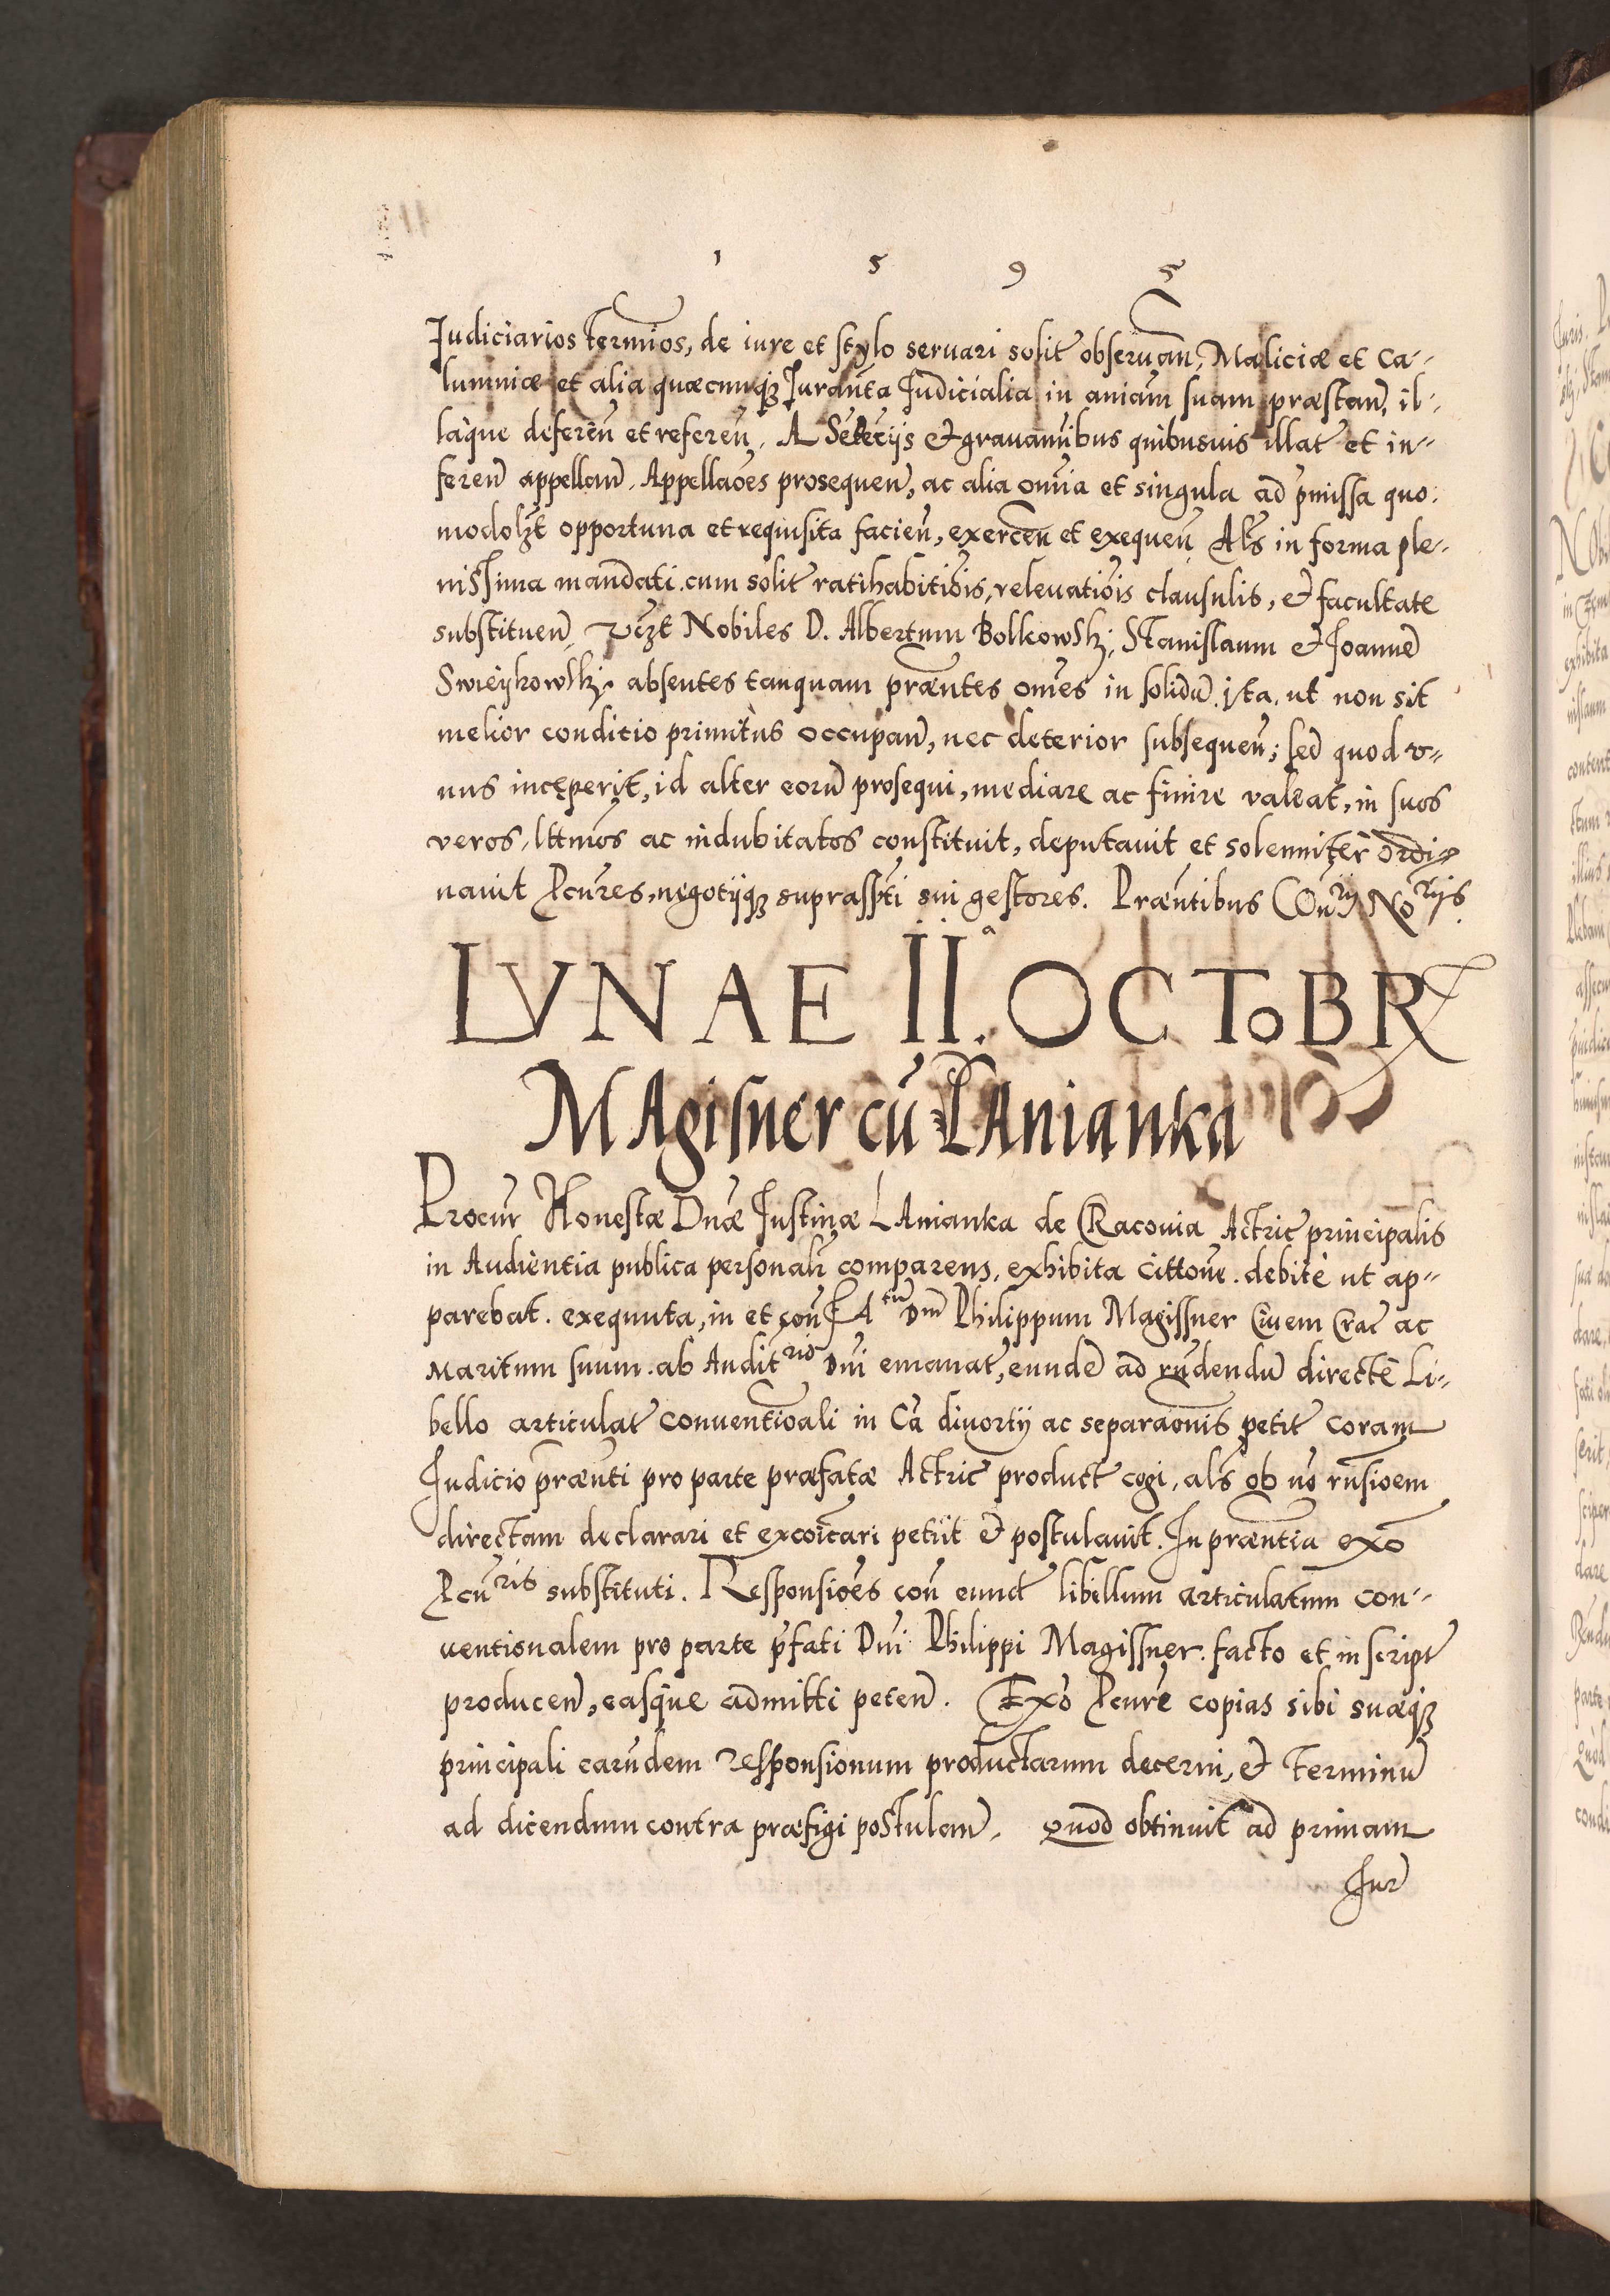 1 5 9 5
Judiciarios termios, de iure et stylo seruari solit obseruan, Maliciæ et ca-
lumniæ et alia quæcunqȝ Juranta Judicialia in aniam suam præstan, il-
laque deferen et referen. A Setecijs et grauamibus quibusuis illat et in-
feren appellan. Appellaões prosequen, ac alia omia et singula ad pmissa quo-
modolȝt opportuna et requisita facien, exercen et exequen Als in forma ple-
nissima mandati cum solit ratihabitiois, releuatiois clausulis, et facultate
substituen, vcȝt Nobiles D. Albertum Bolkowskj, Stanislaum et Joannē
Swieykowskj absentes tanquam præntes omēs in solidū ita ut non sit
melior conditio primitus occupan, nec deterior subsequen; sed quod v-
nus incęperit, id alter eorū prosequi, mediare ac finire valeat, in suos
veros, lttmos ac indubitatos constituit, deputauit et solenniter ordi-
nauit Pcures, negotijqȝ suprasspti sui gestores. Præntibus Conrij Norijs.
LVNAE II.a OCToBR
MAgisner cū LAnianka
Procur Honestæ Dnæ Justinæ LAnianka de CRacouia Actric principalis
in Audientia publica personalr comparens, exhibita cittone debite ut ap-
parebat exequuta, in et con FAtum Dnm Philippum Magissner Ciuem Crac ac
Maritum suum ab Auditris Dni emanat, eundē ad rndendū directe Li-
bello articulat conuentioali in Cā diuortij ac separaonis petit coram
Judicio prænti pro parte præfatæ Actric product cogi, als ob nō rnsioem
directam declarari et excoicari petijt et postulauit. In præntia exō
Pcuris substituti. Responsioēs con eund libellum articulatum con-
uentionalem pro parte pfati Dni Philippi Magissner facto et in script
producen, easque admitti peten. Exō Pcure copias sibi suæqȝ
principali earundem responsionum productarum decerni, et terminū
ad dicendum contra præfigi postulan. quod obtinuit ad primam
Jur